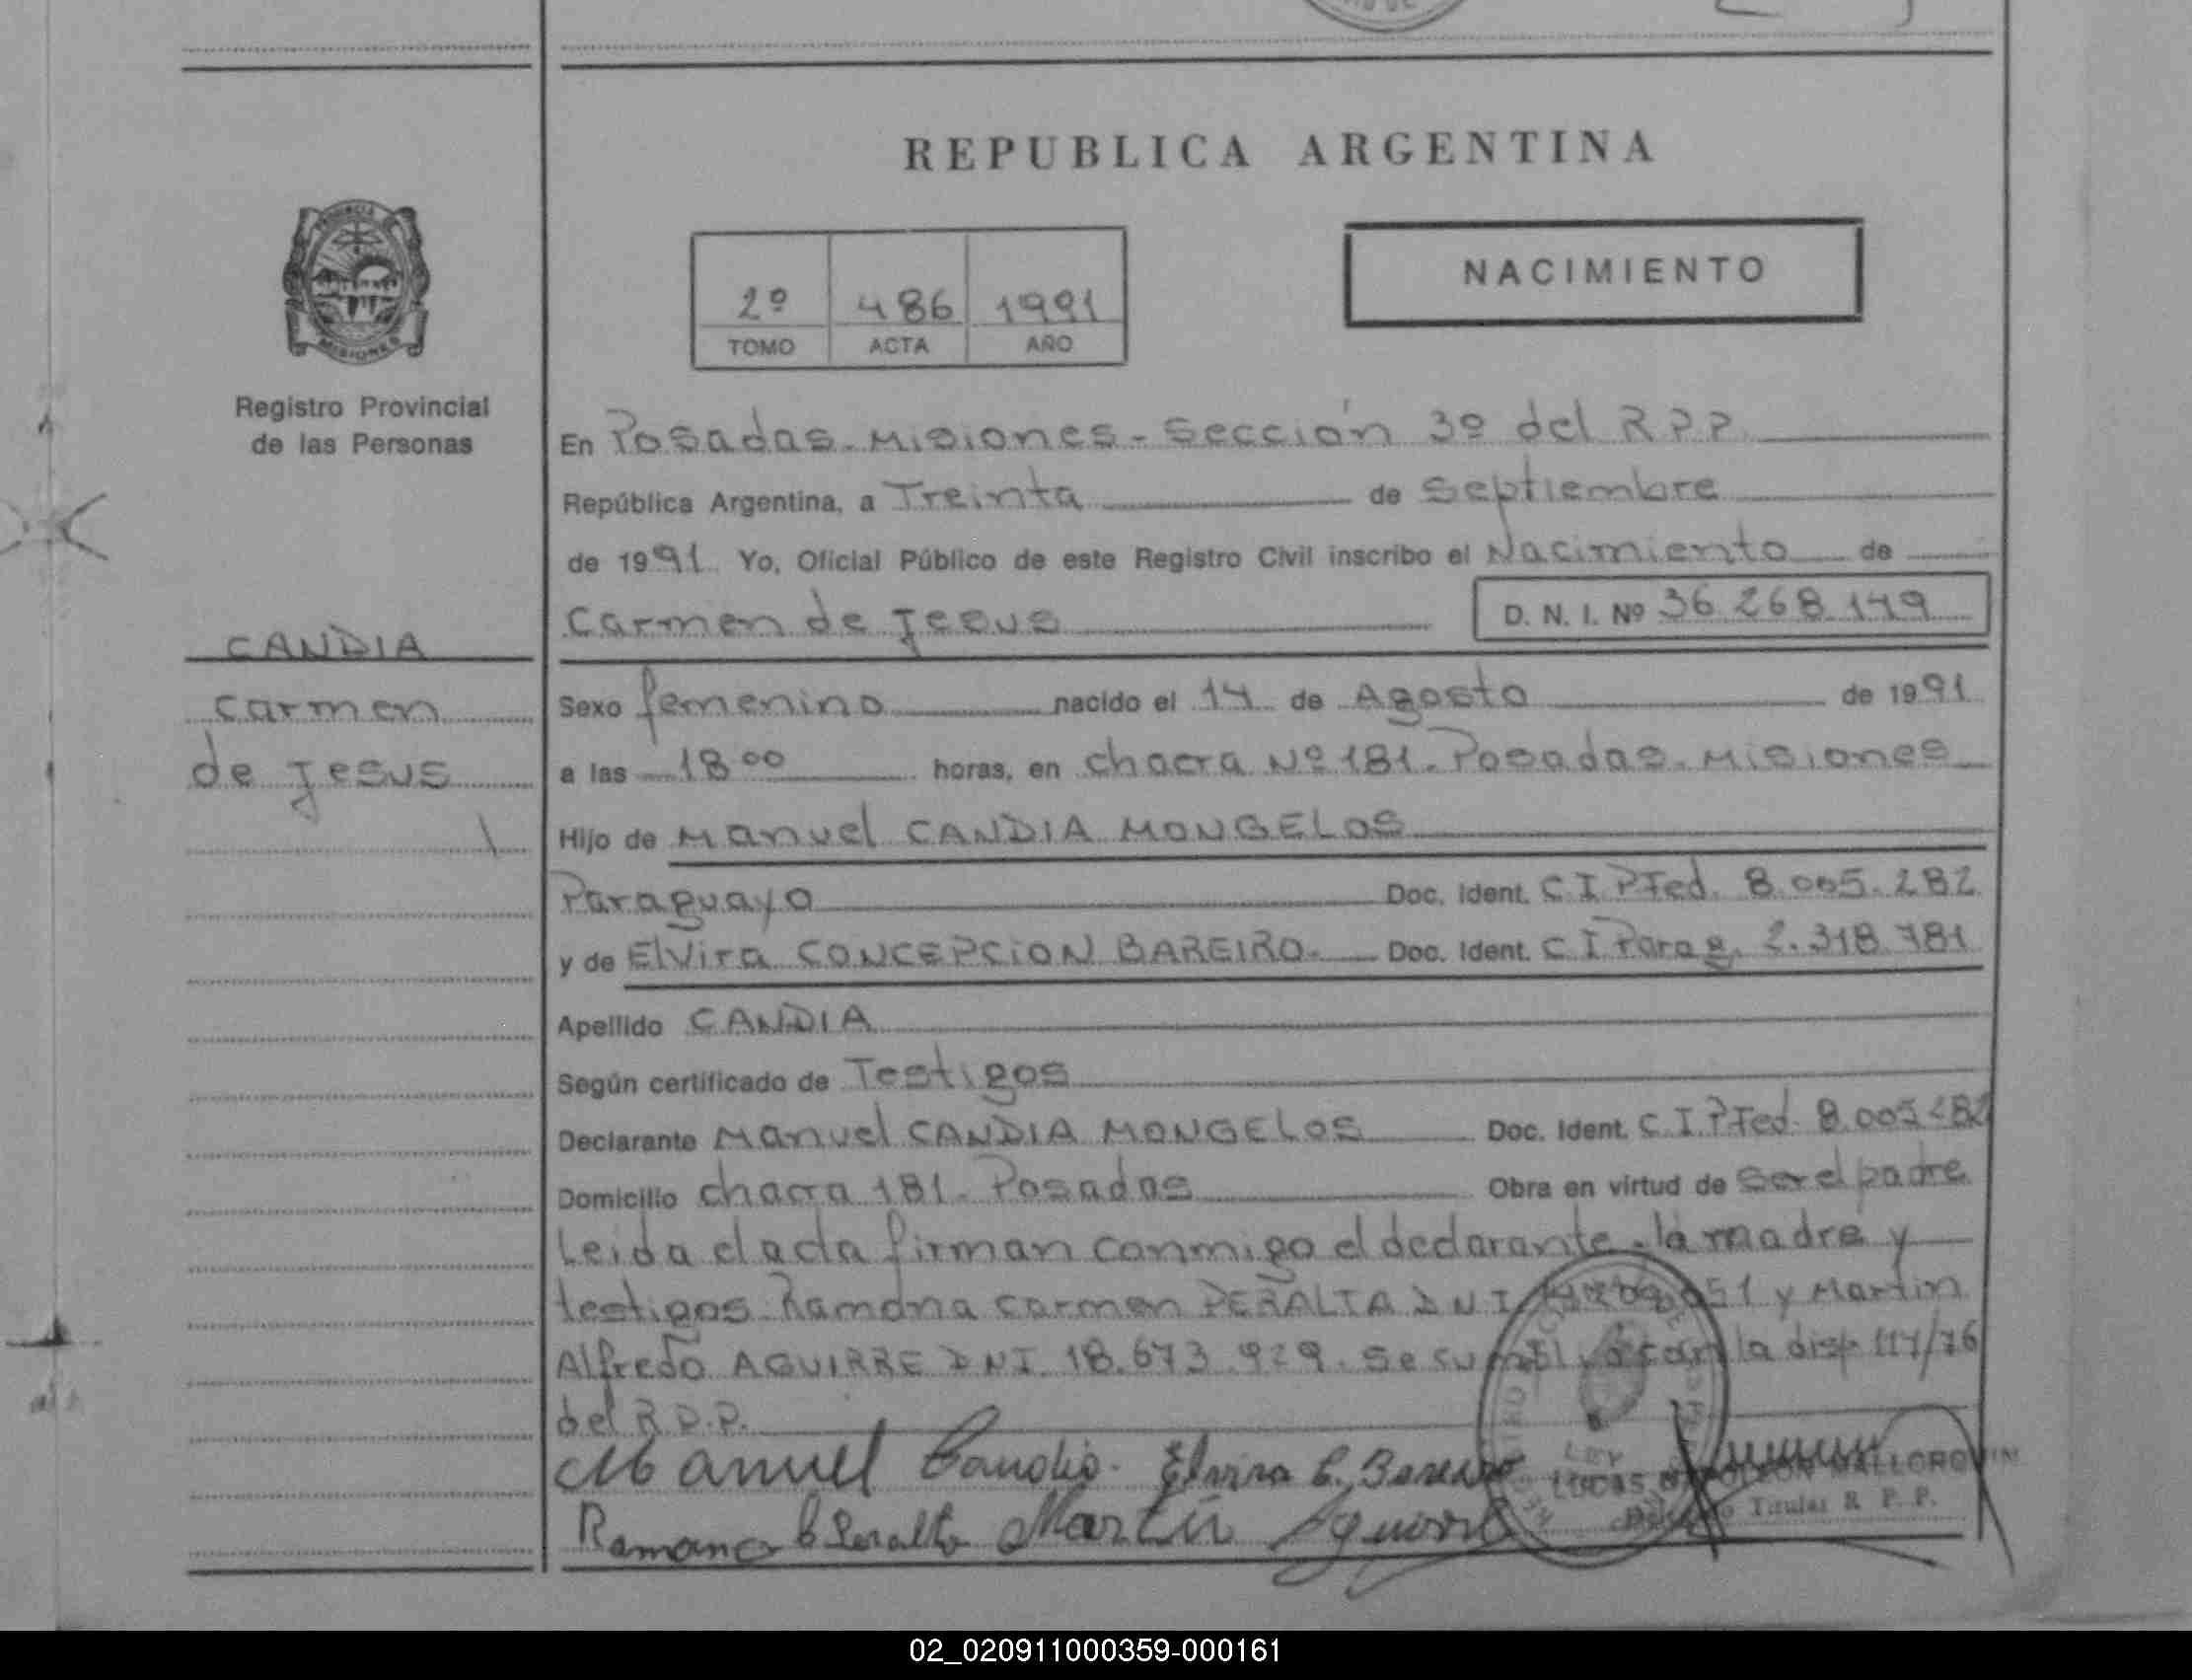 REPUBLICA ARGENTINA
NACIMIENTO
2º 486 1991
TOMO ACTA AÑO
PROVINCIA DE
MISIONES
Registro Provincial
de las Personas
En Posadas - Misiones - Sección 3º del R P P
República Argentina, a Treinta de Septiembre
de 1991 Yo, Oficial Público de este Registro Civil inscribo el Nacimiento de
Carmen de Jesus D. N. I. Nº 36 268 149
CANDIA
Carmen
de Jesus
Sexo femenino nacido el 14 de Agosto de 1991
a las 18 00 horas, en chacra Nº 181 - Posadas - Misiones
Hijo de Manuel CANDIA MONGELOS
Paraguayo Doc. Ident. C I PFed. 8.005.282
y de Elvira CONCEPCION BAREIRO. Doc. Ident. C I Parag. 2.318.781
Apellido CANDIA
Según certificado de Testigos
Declarante Manuel CANDIA MONGELOS Doc. Ident. C.I.PFed. 8.005.282
Domicilio chacra 181 - Posadas Obra en virtud de ser el padre
Leida el acta firman conmigo el declarante, la madre y
testigos Ramona Carmen PERALTA DNI 051 y Martin
Alfredo AGUIRRE DNI 18.673.929. Se con la disp 117/76
del R.P.P.
Manuel Candia. Elvira C. Bareiro
LEY
LUCAS NAPOLEON MALLORQUIN
Titular R. P. P.
Ramona C Peralta Martin Aguirre
02_020911000359-000161